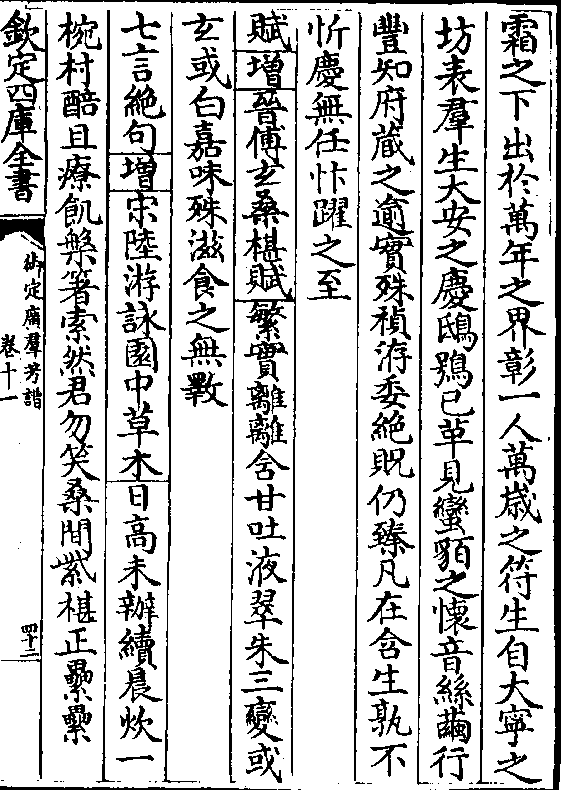 霜之下出於萬年之界彰一人萬歳之符生自大寧之
坊表羣生大安之慶鴟鴞已革見蠻貊之懷音絲繭行
豐知府蔵之逾實殊禎洊委絶貺仍臻凡在含生孰不
忻慶無任忭躍之至
賦増晉傅玄桑椹賦繁實離離含甘吐液翠朱三變或
玄或白嘉味殊滋食之無斁
七言絶句増宋陸游詠園中草木日高未辦續晨炊一
椀村醅且療飢槃箸索然君勿笑桑間紫椹正纍纍
欽定四庫全書
御定廣羣芳譜
卷十一
四十二